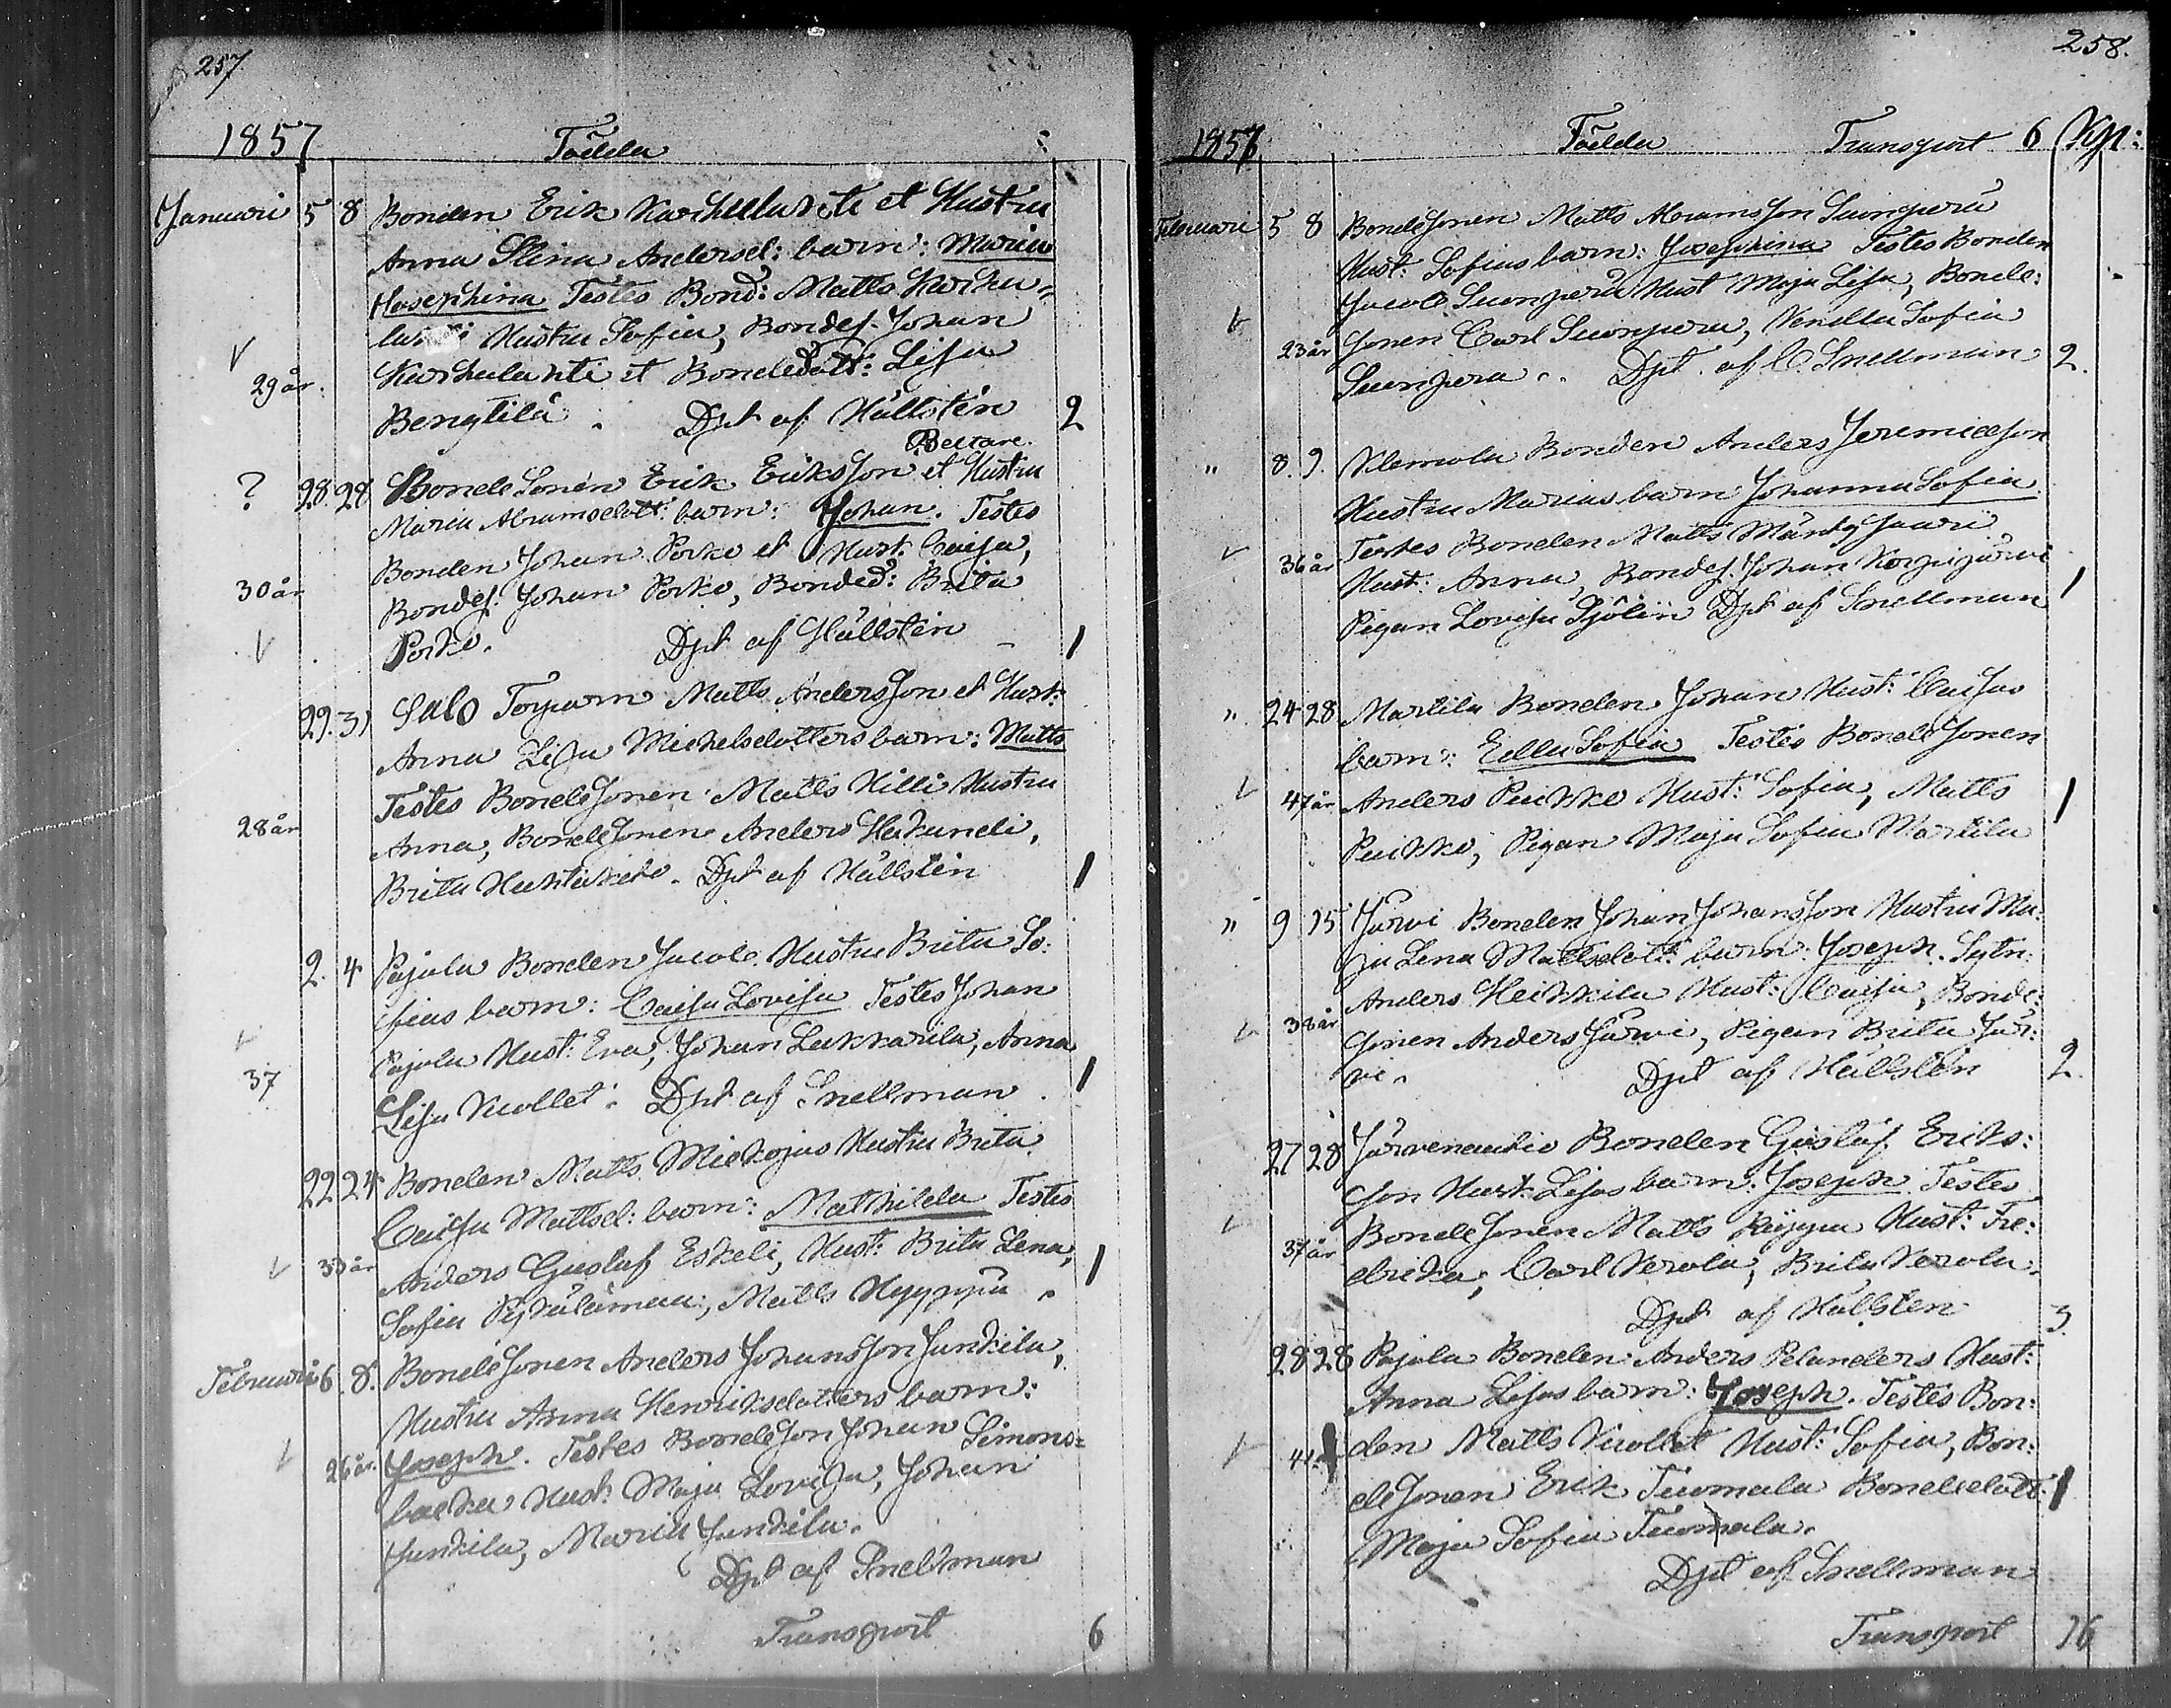 257
1857 Födda
Januari 5 8 Bonden Erik Karhulahti et Hustru
Anna Stina Andersd: barn: Maria
Josephina Testes Bond: Matts Karhu-
lahti Hustru Sofia, Bondes. Johan
29 år. Karhulahti et Bondedott: Lisa
Bengtilä. Dpt af Hällsten 2
Beccare.
? 28. 28 Bonde Sonen Erik Eriksson et Hustru
Maria Abramsdott: barn: Johan. Testes
Bonden Johan Porko et Hust. Caisa,
30 år Bondes. Johan Porko, Bonded: Brita
Porko. Dpt af Hällsten 1
29. 31 Salo Torparn Matts Andersson et Hust:
Anna Lisa Michelsdotters barn: Matts
Testes Bondesonen Matts Hilli Hustru
28 år Anna, Bondesonen Anders Hakundi,
Brita Huhtaketo. Dpt af Hällsten 1
2. 4 Pajala Bonden Jacob Hustru Brita So:
fias barn: Caisa Lovisa Testes Johan
Pajala Hust: Eva, Johan Lukkarila, Anna
37 Lisa Vuollet. Dpt af Snellman. 1
22 24 Bonden Matts Miekojas Hustru Brita
Caisa Mattsd: barn: Mathilda Testes
33 år Anders Gustaf Eskeli, Hust: Brita Lena, 1
Sofia, Matts Hyyppä.
Februari 6. 8. Bondesonen Anders Johansson Junkila,
Hustru Anna Henriksdotters barn:
26 år. Joseph. Testes Bondeson Johan Simons=
backa Hust: Maja Lovisa, Johan
Junkila, Maria Junkila.
Dpt af Snellman
Transport 6
258.
1857 Födda Transport 6 Kp:
Februari 5 8 Bondesonen Matts Abramsson Suonperä
Hust: Sofias barn: Josephina Testes Bonden
Jacob Suonperä Hust Maja Lisa, Bonde:
23 år sonen Carl Suonpera, Vendla Sofia
Suonpera. Dpt. af C. Snellman 2.
" 8. 9. Klemola Bonden Anders Jeremiesson
Hustru Marias barn Johanna Sofia
36 år Testes Bonden Matts Mäntyjauri
Hust: Anna, Bondes. Johan Korpijärvi
Pigan Lovisa Sjölin Dpt af Snellman 1
" 24 28 Martila Bonden Johan Hust: Caisas
barn: Edla Sofia Testes Bondesonen
47 år Anders Puikko Hust: Sofia, Matts 1
Puikko, Pigan Maja Sofia Martila
" 9 15 Järvi Bonden Johan Johansson Hustru Ma:
ja Lena Mattsdott: barn: Joseph. Sytn:
Anders Heikkila Hust: Caisa, Bonde:
38 år sonen Anders Järvi, Pigan Brita Jär:
vi. Dpt af Hällsten 2.
27 28 Järvenautio Bonden Gustaf Eriks:
son Hust: Lisas barn: Joseph Testes
37 år Bondesonen Matts Räyppä Hust: Fre:
drika, Carl Verola, Brita Verola.
Dpt af Hällsten 3.
28 28 Pajala Bonden Anders Pelanders Hust:
Anna Lisas barn: Joseph. Testes Bon:
41 den Matts Vuollet Hust: Sofia, Bon:
desonen Erik Tuomala Bondedott: 1
Maja Sofia Tuomala.
Dpt af Snellman
Transport 16